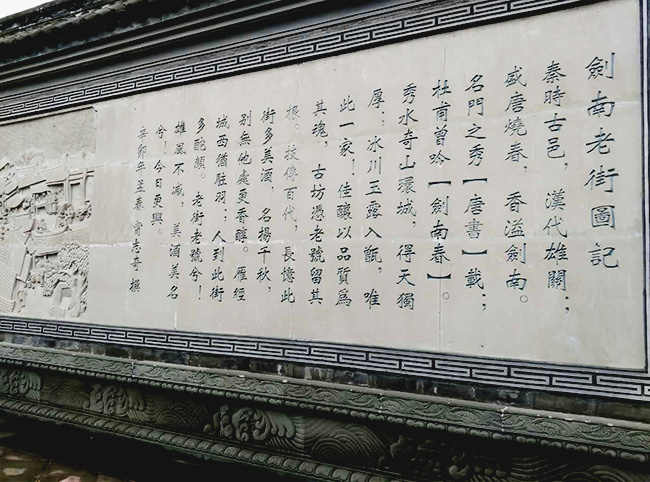 劍南老街圖記
秦時古邑，漢代雄關；
盛唐燒春，香溢劍南。
名門之秀【唐書】載；
杜甫曾吟【劍南春】。
秀水奇山環城，得天獨
厚；冰川玉露入甑，唯
此一家！佳釀以品質爲
其魂，古坊憑老號留其
根。技傳百代，長憶此
街多美酒，名揚千秋，
別無他處更香醇。雁經
城西猶駐羽；人到此街
多酡顏。老街老號兮！
雄風不减，美酒美名
兮！今日更興。
辛卯年孟春 老奇 撰